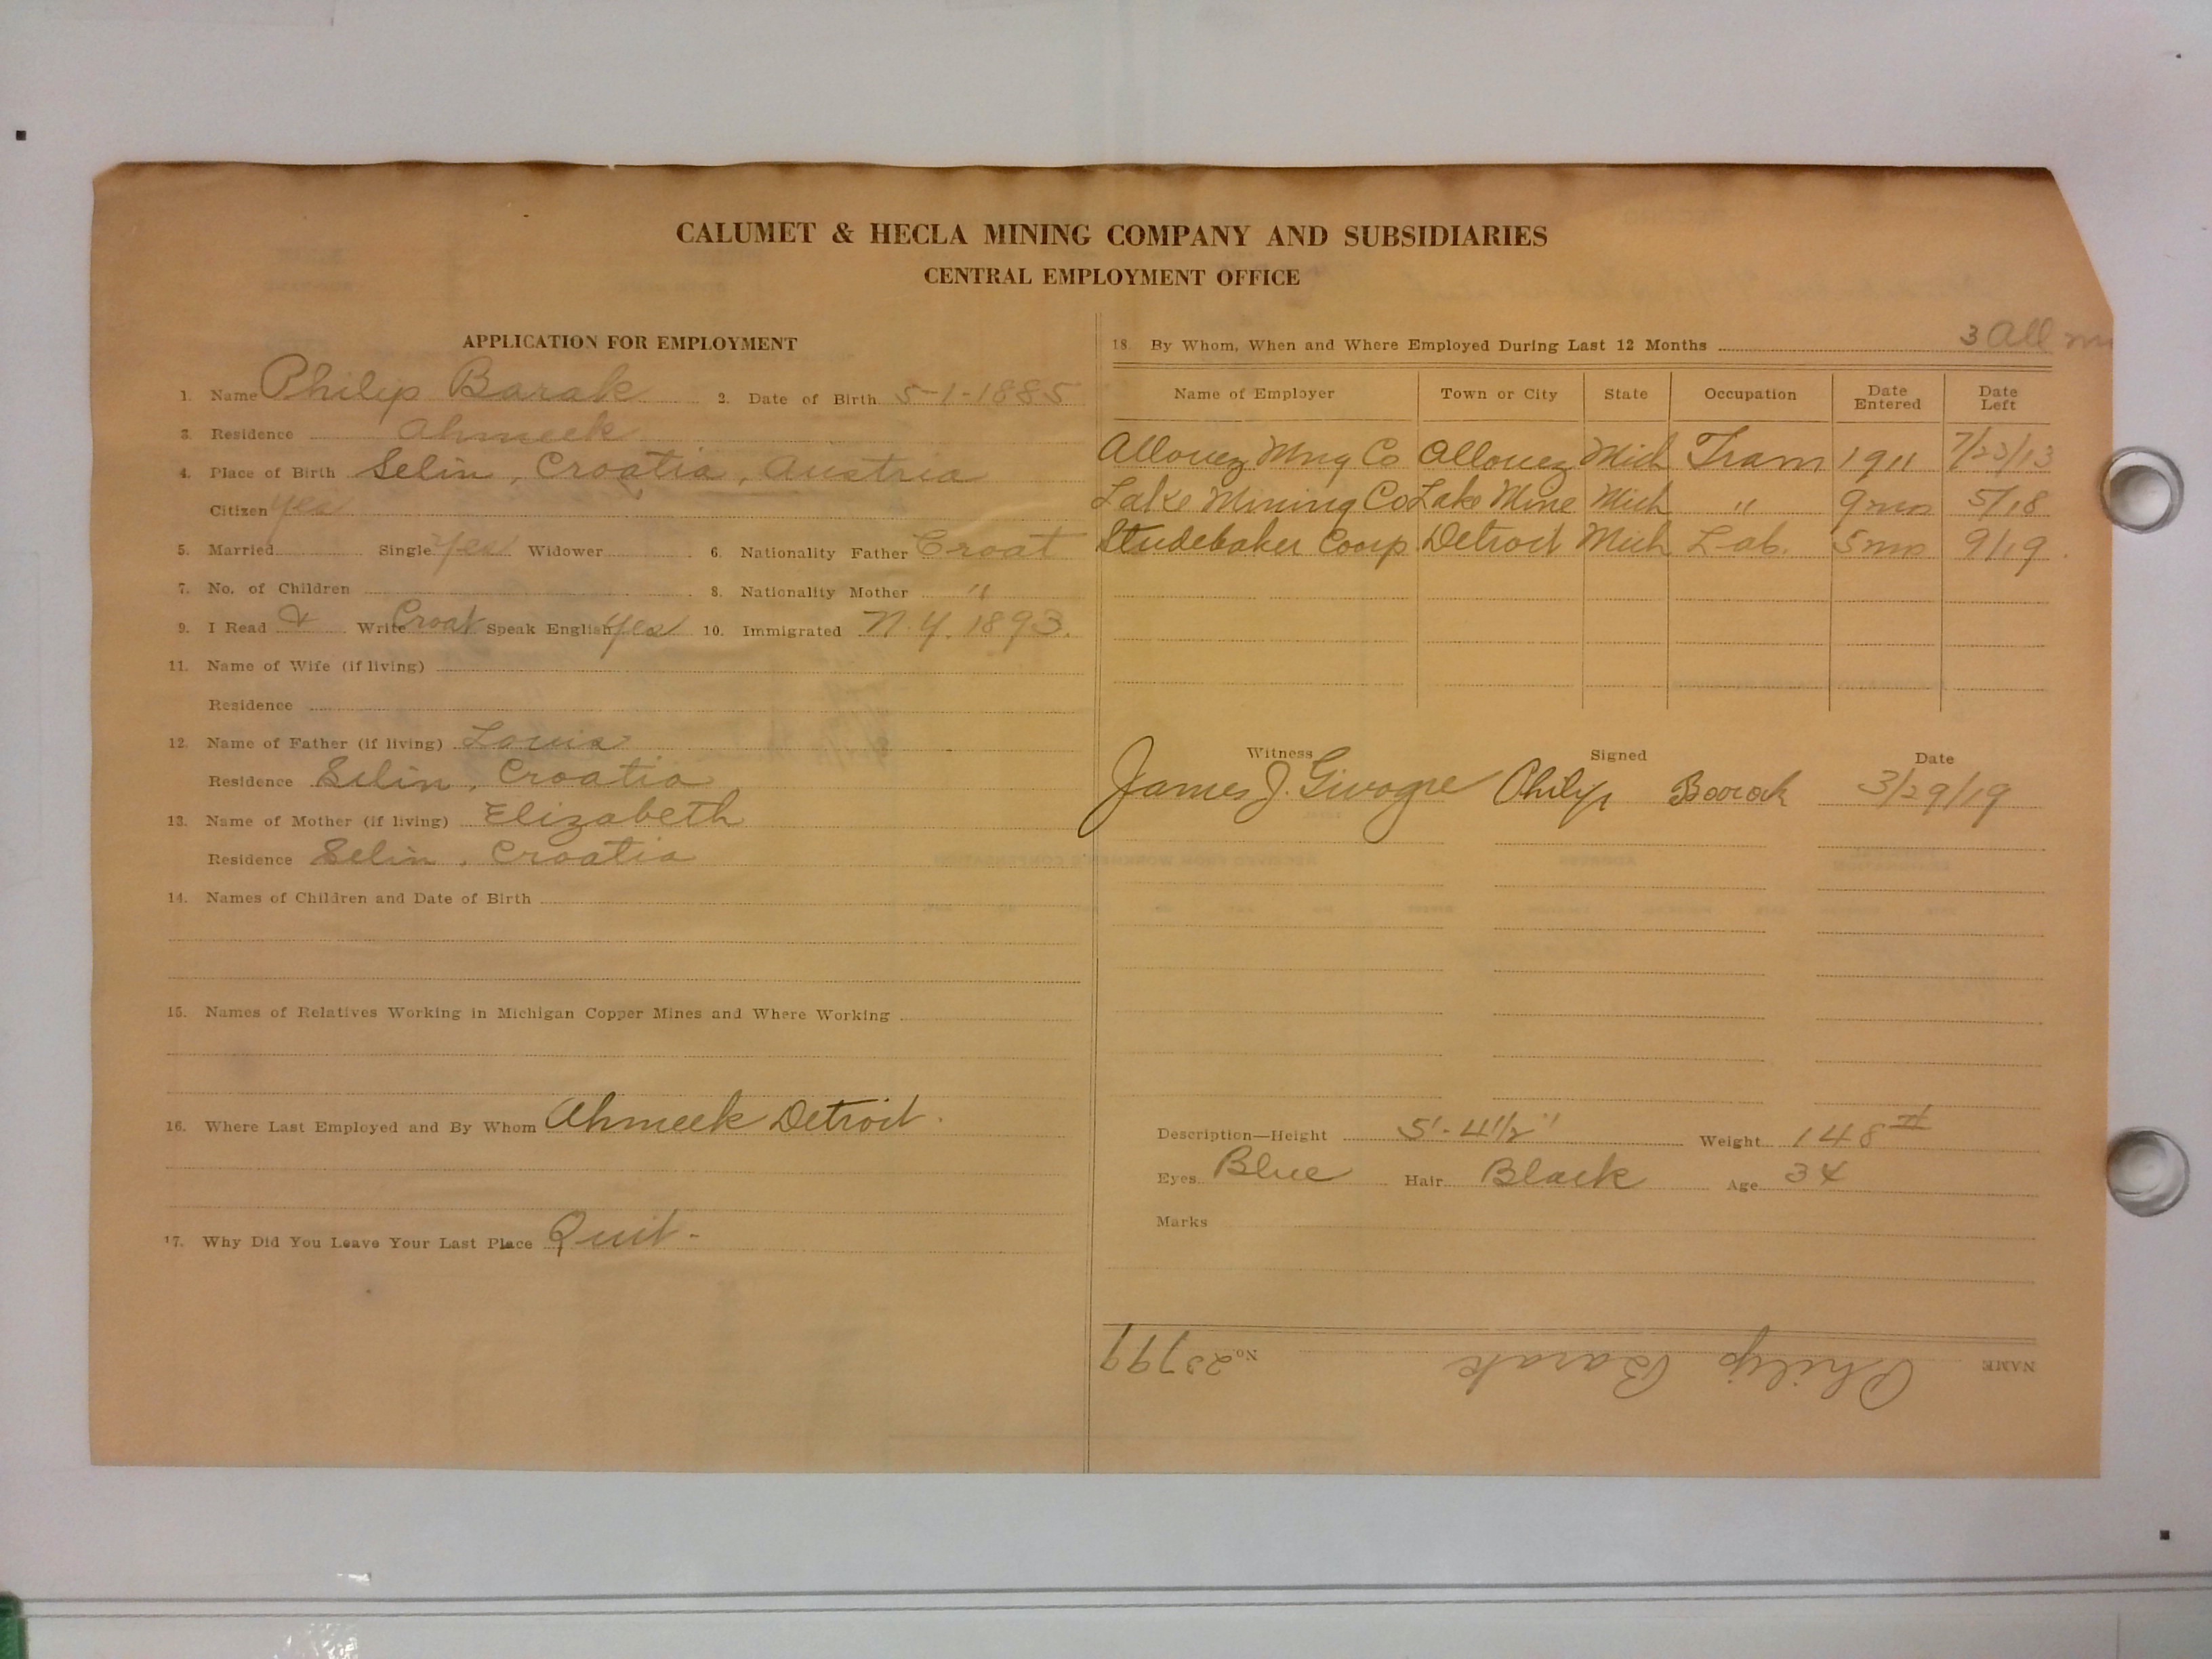 CALUMET & HECLA MINING COMPANY AND SUBSIDIARIES
CENTRAL EMPLOYMENT OFFICE
APPLICATION FOR EMPLOYMENT
1. Name Philip Barak 2. Date of Birth 5-1-1885
3. Residence Ahmeek
4. Place of Birth Selin, Croatia, Austria
Citizen Yes
5. Married Single Yes Widower 6. Nationality Father Croat
7. No. of Children 8. Nationality Mother "
9. I Read & Write Croat Speak English Yes 10. Immigrated N.Y. 1893.
11. Name of Wife (if living)
Residence
12. Name of Father (if living) Louis
Residence Selin, Croatia
13. Name of Mother (if living) Elizabeth
Residence Selin, Croatia
14. Names of Children and Date of Birth
15. Names of Relatives Working in Michigan Copper Mines and Where Working
16. Where Last Employed and By Whom Ahmeek Detroit.
17. Why Did You Leave Your Last Place Quit-
18. By Whom, When and Where Employed During Last 12 Months 3 All
Name of Employer Town or City State Occupation Date Entered Date Left
Allouez Mng Co Allouez Mich Tram 1911 7/23/13
Lake Mining Co Lake Mine Mich " 9 mo 5/18
Studebaker Coorp. Detroit Mich Lab. 5 mo 9/19.
Witness Signed Date
James J. Philip Barak 3/29/19
Description—Height 5'-4 1/2" Weight 148 #
Eyes Blue Hair Black Age 34
Marks
NAME Philip Barak No. 23799